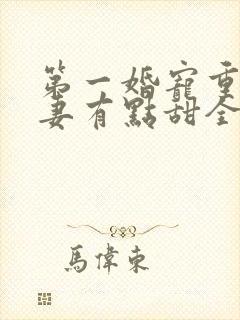 第一婚寵重
妻有點甜全
馬偉東